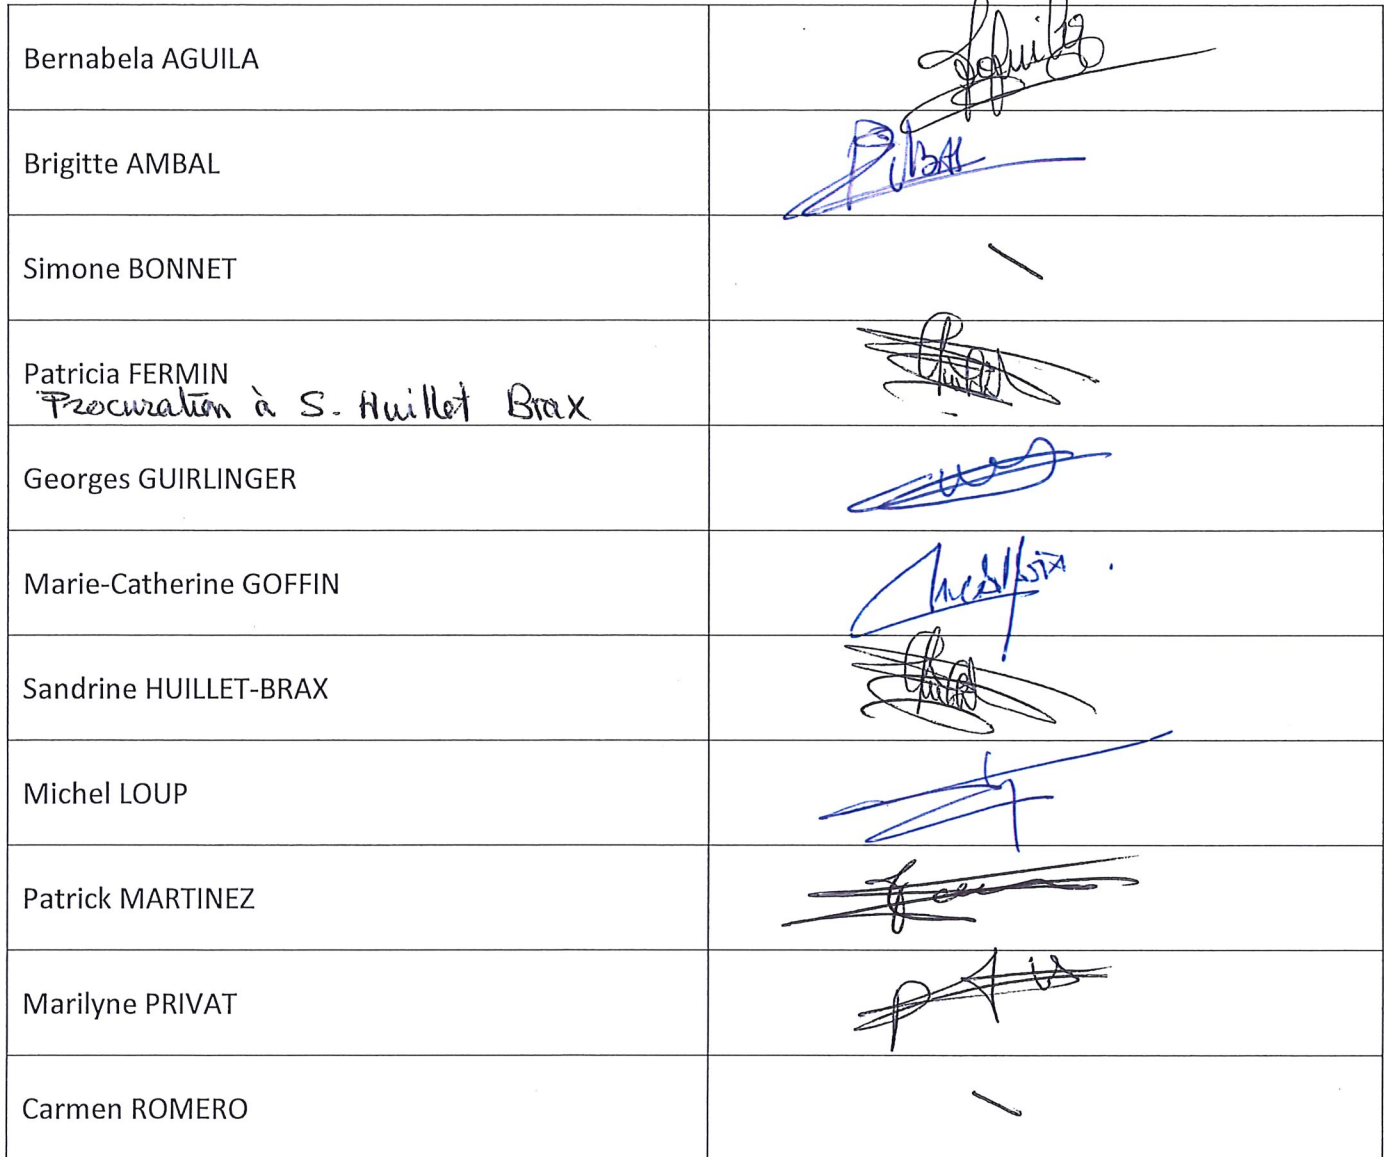 Bernabela AGUILA
Brigitte AMBAL
Simone BONNET
Patricia FERMIN
Procuration à S. Huillet Brax
Georges GUIRLINGER
Marie-Catherine GOFFIN
Sandrine HUILLET-BRAX
Michel LOUP
Patrick MARTINEZ
Marilyne PRIVAT
Carmen ROMERO